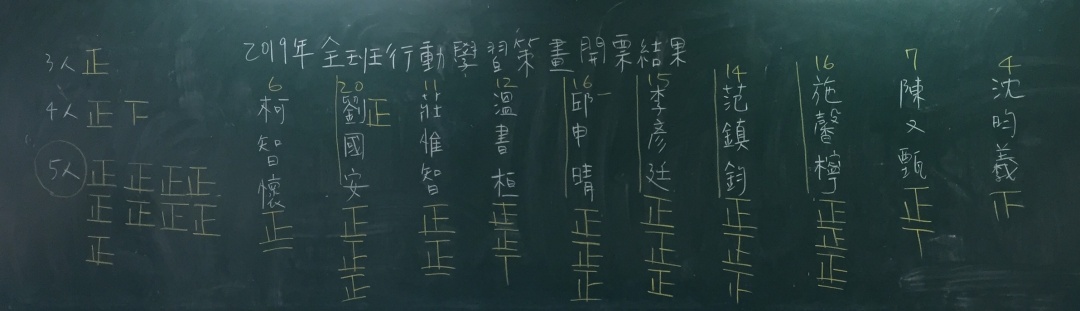 2019年全班行動學習策畫開票結果
3人 正
4人 正 下
5人 正 正 正 正
正 正 正 正
正
6 柯智懷 正 一
20 劉國安 正 正 正 正
11 莊惟智 正 正 一
12 溫書桓 正 正 丅
16 邱申晴 正 正 正 一
15 李彥廷 正 正 正
14 范鎮鈞 正 正
16 施馨檸 正 正 正 一
7 陳又甄 正 丅
4 沈昀義